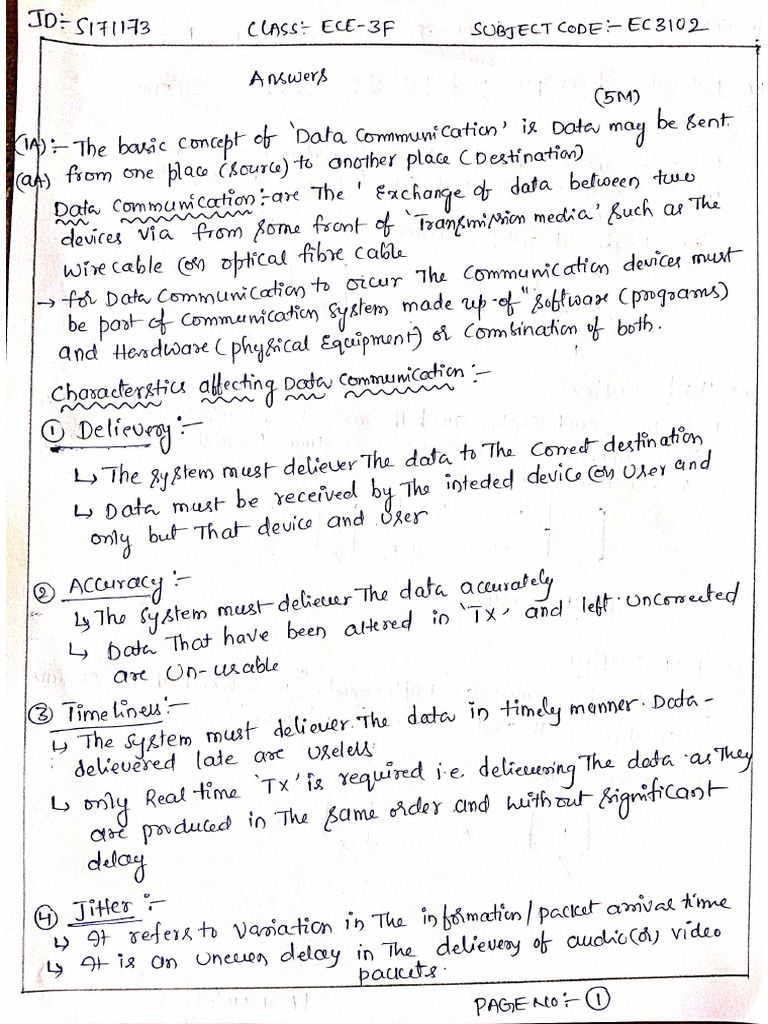 ID:- S171173 CLASS:- ECE-3F SUBJECT CODE:- EC3102
Answers
(5M)
(1A):- The basic concept of 'Data Communication' is Data may be sent
(aA) from one place (source) to another place (Destination)
Data Communication:- are The ' Exchange of data between two
devices via from some front of 'Transmission media' such as The
wire cable (or) optical fibre cable
→ for Data Communication to oicur The Communication devices must
be part of Communication system made up-of "software (programs)
and Hardware (physical Equipment) or Combination of both.
Characterstics affecting Data Communication:-
① Delievery:-
↳ The system must deliever The data to The Correct destination
↳ Data must be received by The inteded device (or) User and
only but That device and User
② Accuracy:-
↳ The system must deliever The data accurately
↳ Data That have been altered in 'TX' and left uncorrected
are Un-usable
③ Timeliness:-
↳ The system must deliever The data in timely manner. Data -
delievered late are useless.
↳ only Real time 'TX' is required i.e. delievering The data as They
are produced in The same order and without significant
delay
④ Jitter:-
↳ It refers to variation in The information/packet arrival time
↳ It is an uneven delay in The delievery of audio (or) video
packets.
PAGE NO:- ①